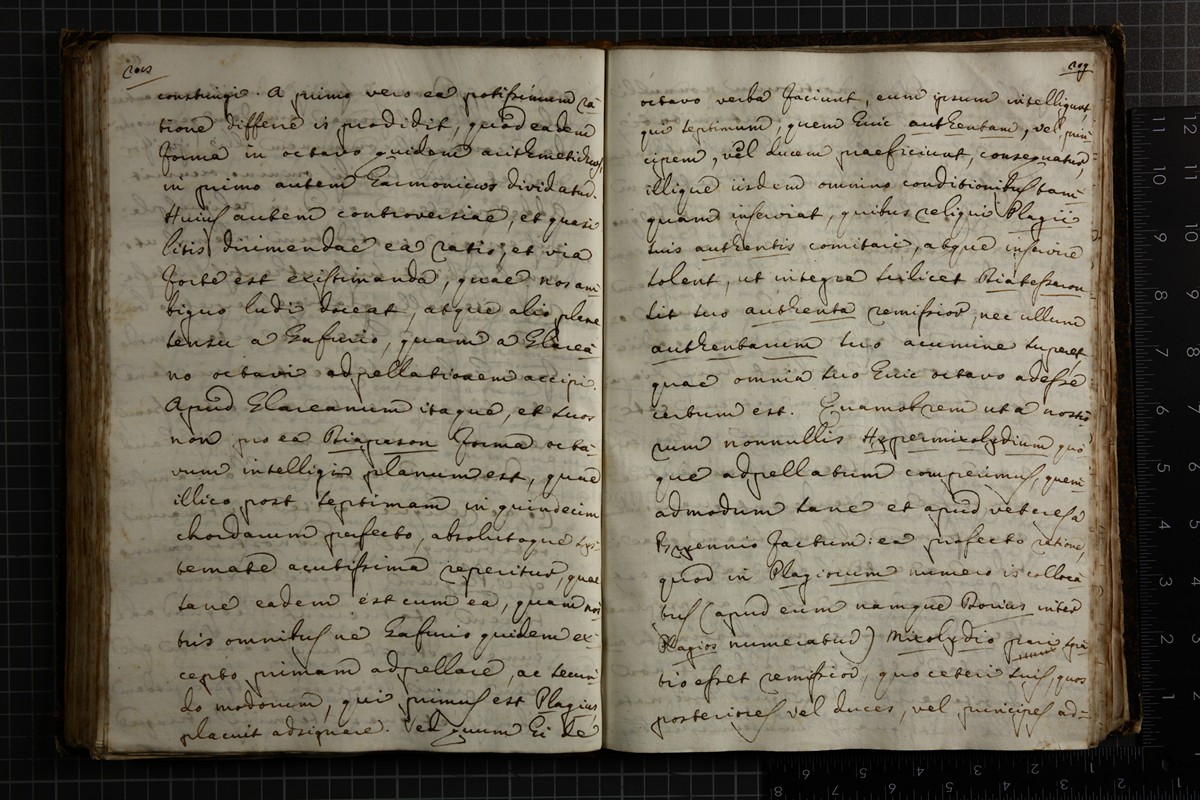 208
constringi. A primo vero ea potissimum ra-
tione differre is prodidit, quod eadem
forma in octavo quidem arithmeticws,
in primo autem harmonicws dividatur.
Huius autem controversiae, et quasi
litis dirimendae ea ratio, et via
forte est existimanda, quae nos am-
biguo ludi doceat, atque alio plane
sensu a Gafurio, quam a Glarea-
no octavi adpellationem accipi.
Apud Glareanum itaque, et suos
non pro ea Diapason forma octa-
vum intelligi planum est, quae
illico post septimam in quindecim
chordarum perfecto, absolutoque sys-
temate acutissima reperitur, quae
sane eadem est cum ea, quam nos-
tris omnibus ne Gafurio quidem ex-
cepto primam adpellare, ac secun-
do modorum, qui primus est Plagius
placuit adsignare. Sed quum hi de
209
octavo verba faciunt, eum ipsum intelligunt,
qui septimum, quem huic authentam, vel prin-
cipem, vel ducem praeficiunt, consequatur,
illique iisdem omnino conditionibus tam-
quam inserviat, quibus reliqui Plagii
suis authentis comitari, atque inservire
solent, ut integra scilicet Diatessaron
sit suo authenta remissior, nec ullum
authentarum suo acumine superet,
quae omnia suo huic octavo adesse
certum est. Quamobrem ut a nostro-
rum nonnullis Hypermixolydium quo-
que adpellatum comperimus, quem-
admodum sane et apud veteres a
Bryennio factum: ea profecto ratione,
quod in Plagiorum numero is colloca-
tus (apud eum namque Dorius inter
Plagios numeratur) Mixolydio pari spa-
tio esset remissior, quo ceteri suis, quos
posteriores vel duces, vel principes ad-